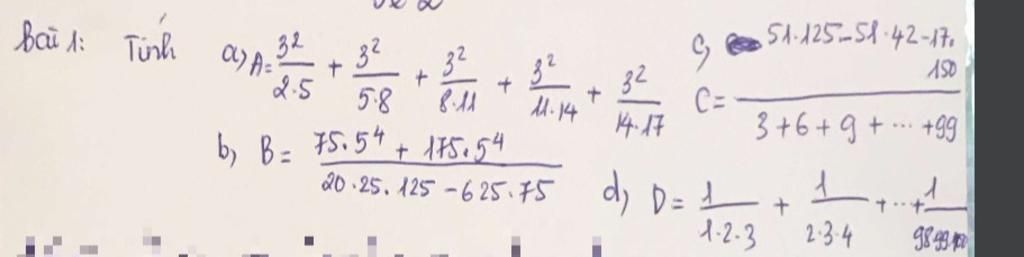 Bài 1: Tính a) A = 3²/2·5 + 3²/5·8 + 3²/8·11 + 3²/11·14 + 3²/14·17
c) C = 51·125 - 51·42 - 17·150 / 3+6+9+...+99
b) B = 75·5⁴ + 175·5⁴ / 20·25·125 - 625·75
d) D = 1/1·2·3 + 1/2·3·4 + ... + 1/98·99·100